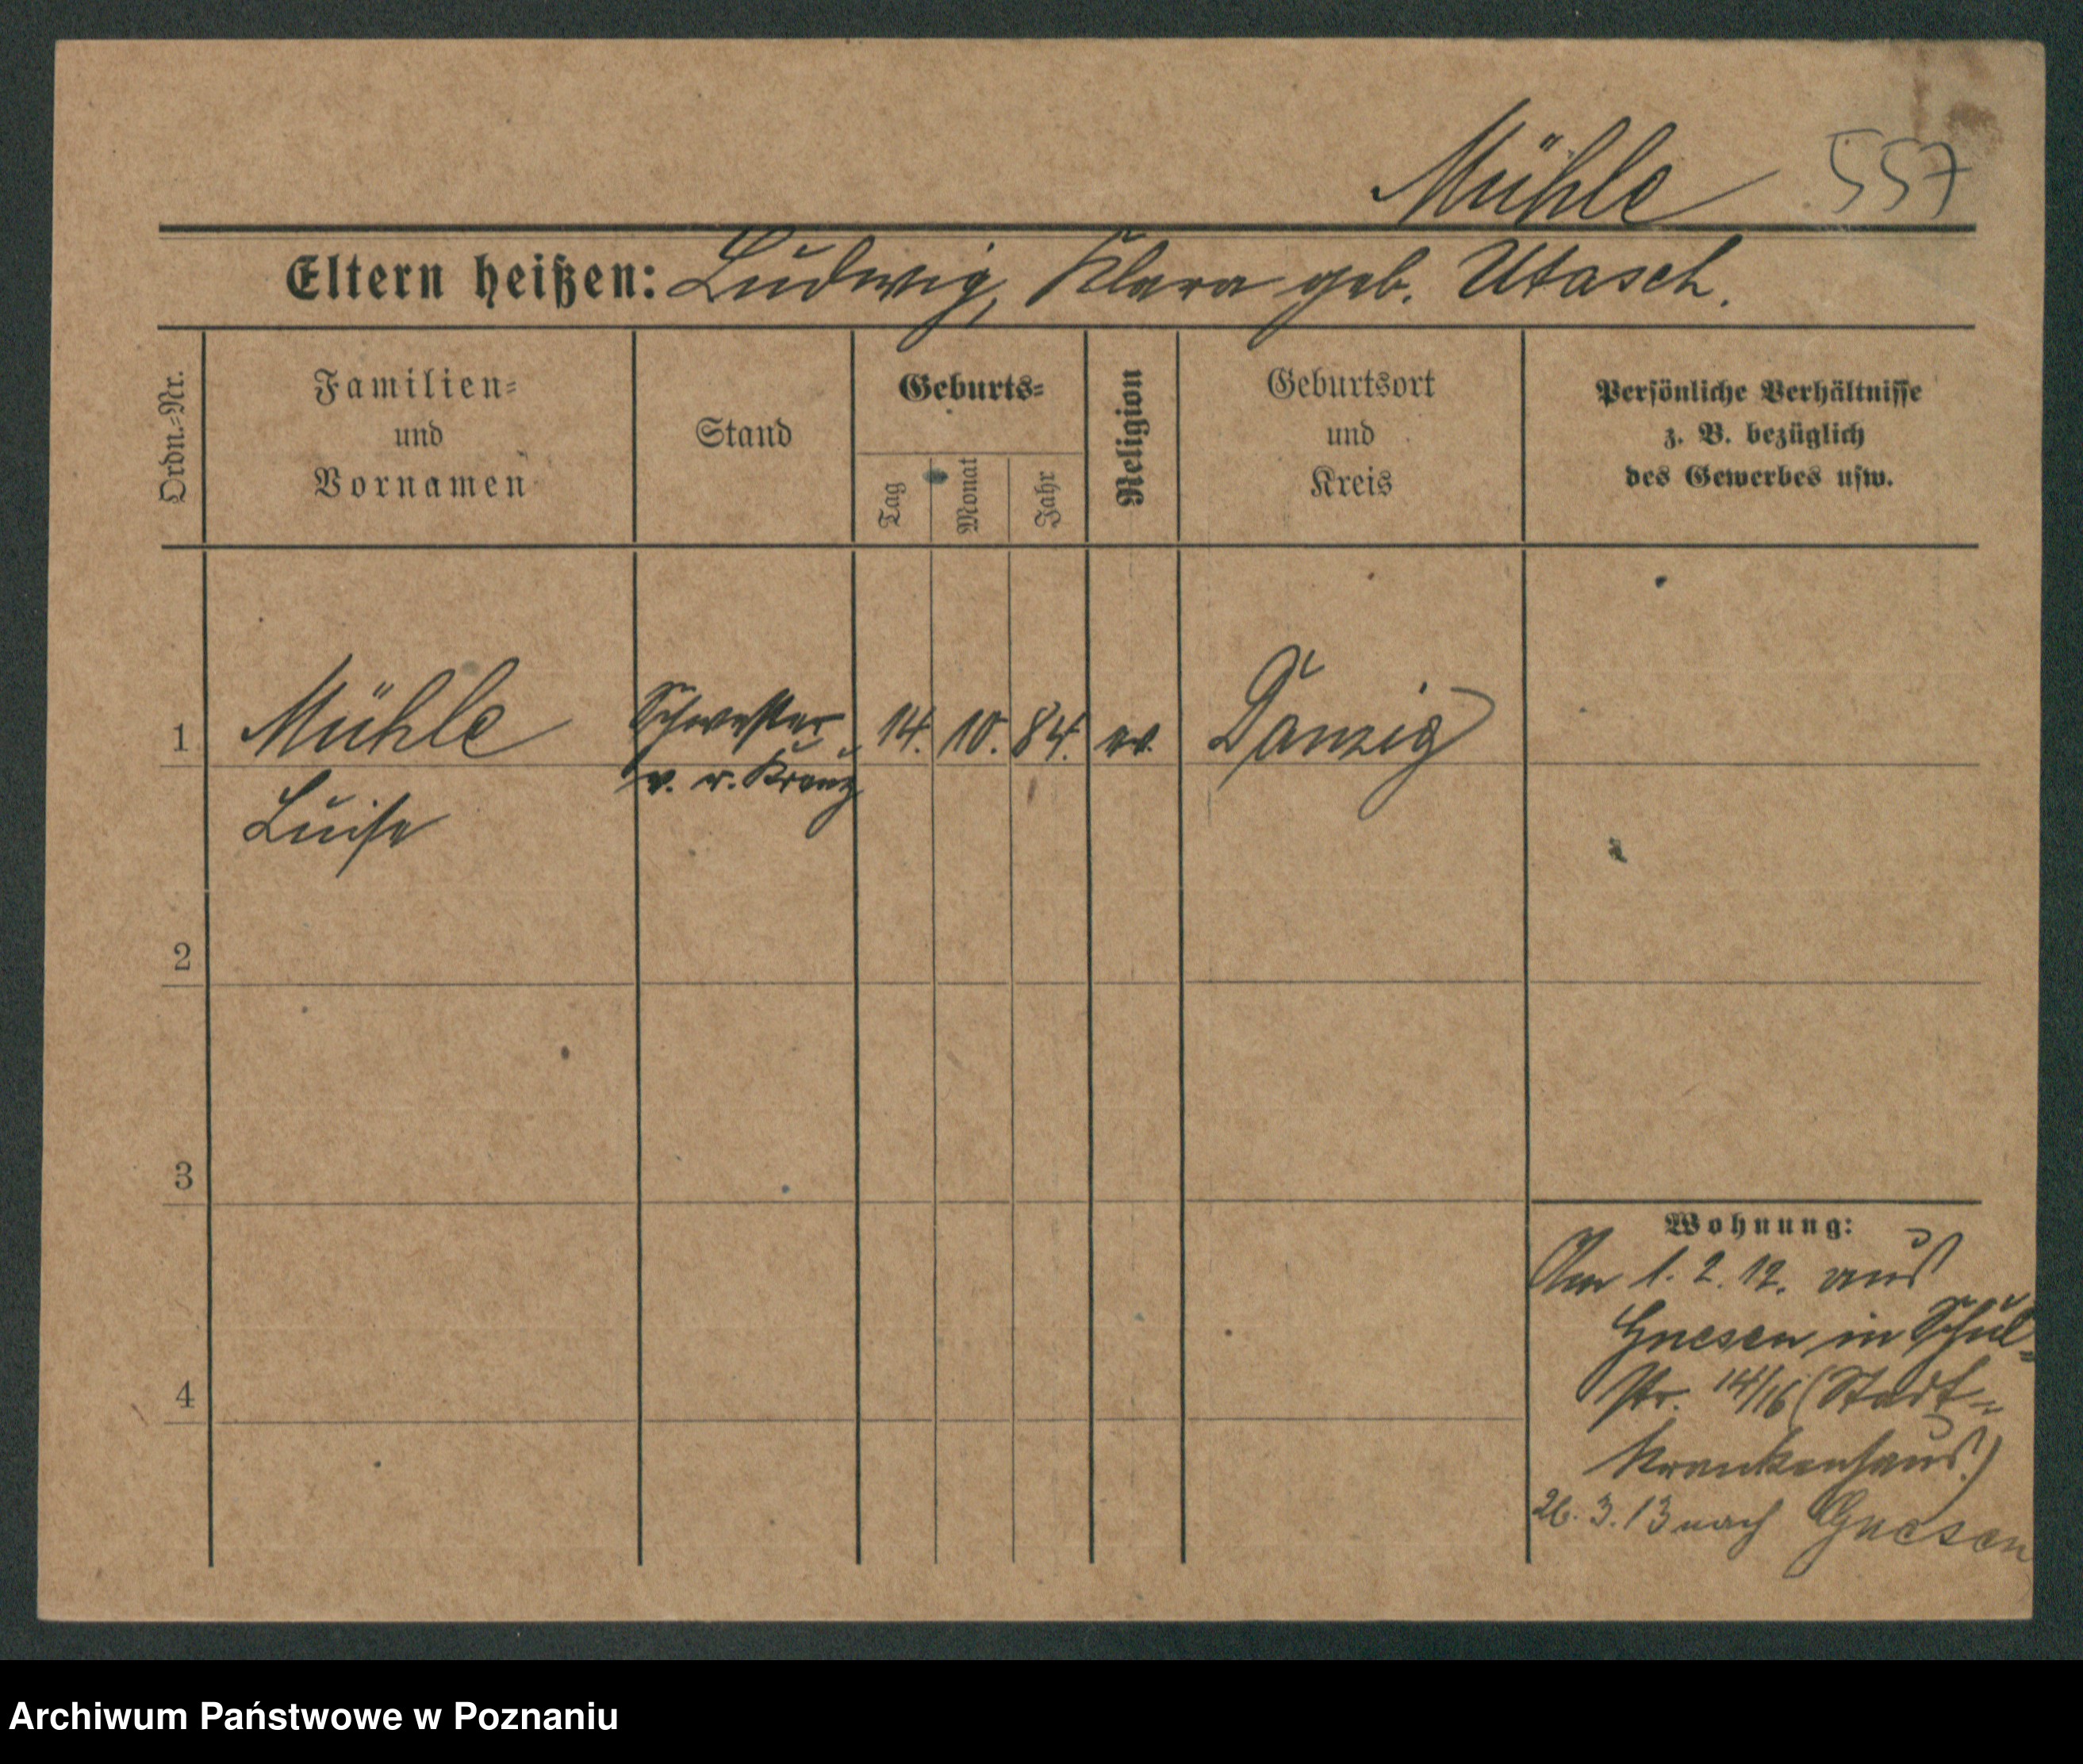 Mühle 557
Eltern heißen: Ludwig, Klara geb. Utasch.
Ordn.=Nr.
Familien=
und
Vornamen
Stand
Geburts=
Tag
Monat
Jahr
Religion
Geburtsort
und
Kreis
Persönliche Verhältnisse
z. B. bezüglich
des Gewerbes usw.
1 Mühle Schwester 14. 10. 84. ev. Danzig
v. r. Kreuz
Luise
2
3
4
Wohnung:
Am 1. 2. 12. aus
Gnesen in Schul=
str. 14/16 (Stadt=
krankenhaus.)
26. 3. 13 nach Gnesen
Archiwum Państwowe w Poznaniu